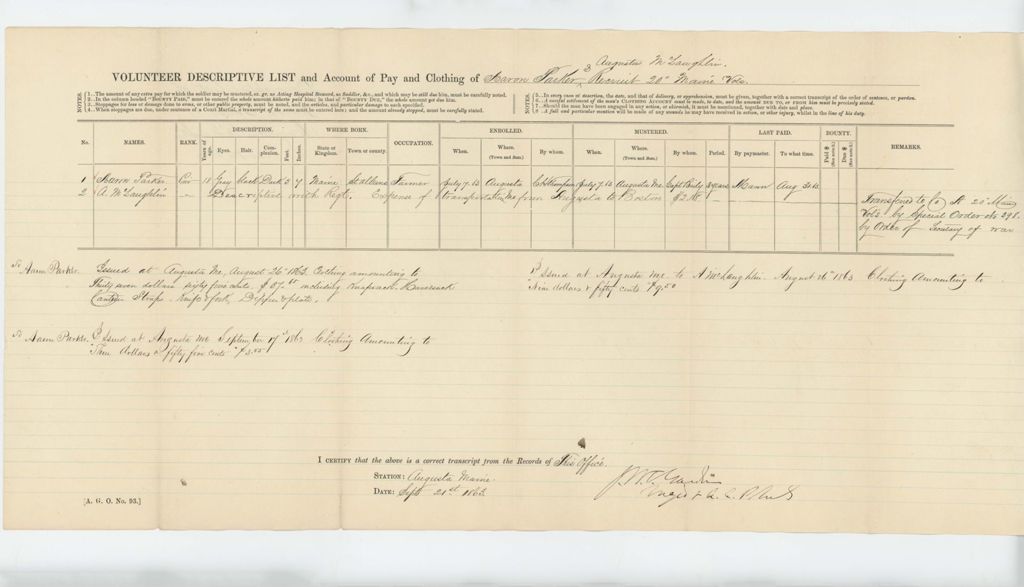 Augustus McLaughlin.
VOLUNTEER DESCRIPTIVE LIST and Account of Pay and Clothing of Aaron Parker, & Recruit 20th Maine Vols.
NOTES.
1. The amount of any extra pay for which the soldier may be mustered, ex. gr. as Acting Hospital Steward, as Saddler, &c., and which may be still due him, must be carefully noted.
2. In the column headed "BOUNTY PAID," must be entered the whole amount hitherto paid him; in that of "BOUNTY DUE," the whole amount yet due him.
3. Stoppages for loss of or damage done to arms, or other public property, must be noted, and the articles and particular damage to each specified.
4. When stoppages are due, under sentence of a Court Martial, a transcript of the same must be entered here; and the amount already stopped, must be carefully stated.
NOTES.
5. In every case of desertion, the date, and that of delivery, or apprehension, must be given, together with a correct transcript of the order of sentence, or pardon.
6. A careful settlement of the man's CLOTHING ACCOUNT must be made, to date, and the amount DUE TO, or FROM him must be precisely stated.
7. Should the man have been engaged in any action, or skirmish, it must be mentioned, together with date and place.
8. A full and particular mention will be made of any wounds he may have received in action, or other injury, whilst in the line of his duty.
DESCRIPTION. WHERE BORN. ENROLLED. MUSTERED. LAST PAID. BOUNTY.
No. NAMES. RANK. Years of age. Eyes. Hair. Complexion. Feet. Inches. State or Kingdom. Town or county. OCCUPATION. When. Where. (Town and State.) By whom. When. Where. (Town and State.) By whom. Period. By paymaster. To what time. Paid $ Due $ REMARKS.
1 Aaron Parker Gray Dark 5 7 Maine St Albans Farmer July 7. 63 Augusta July 7. 63 Augusta Me 3 years Mann Aug 31. 63
2 A. McLaughlin Descriptive with Regt. Expense of transportation from Augusta to Boston $2.
Transfered to Co H 20th Maine
Vols. by Special Order No 391.
by Order of Secretary of War
To Aaron Parker. Issued at Augusta Me, August 26th 1863. Clothing amounting to
Thirty seven dollars sixty five cents. $37. including Knapsack. Haversack
Canteen Straps. Knife & fork, Dipper & plate.
Issued at Augusta Me. to A McLaughlin August 26th 1863 Clothing Amounting to
Nine dollars & fifty cents $9.50
To Aaron Parker. Issued at Augusta Me September 17th 1863 Clothing Amounting to
Three Dollars & fifty five cents $3.55
I CERTIFY that the above is a correct transcript from the Records of This Office.
STATION: Augusta Maine.
DATE: Sept 21st 1863.
[A. G. O. No. 93.]